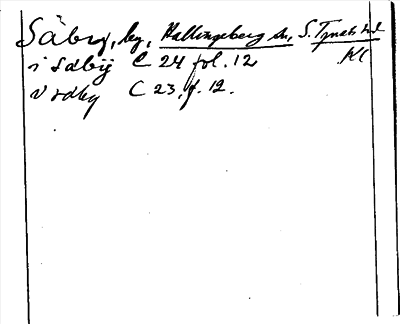 Säby, by, Hallingeberg sn, S. Tjust hd
i Sæby C 24 fol. 12 Kl
v sæby C 23, f. 12.